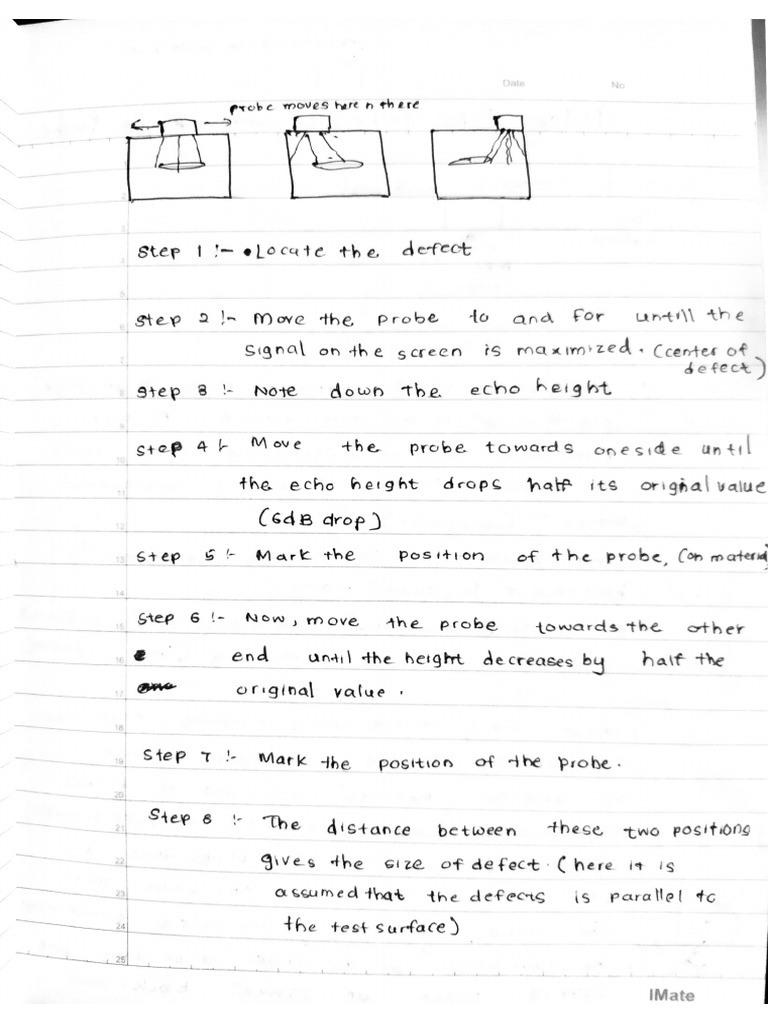 Date No
probe moves here n there
Step 1 :- • Locate the defect
Step 2 :- Move the probe to and for untill the
signal on the screen is maximized. (center of
defect)
Step 3 :- Note down the echo height
Step 4 :- Move the probe towards oneside until
the echo height drops half its original value
(6dB drop)
Step 5 :- Mark the position of the probe, (on material)
Step 6 :- Now, move the probe towards the other
end until the height decreases by half the
original value.
Step 7 :- Mark the position of the probe.
Step 8 :- The distance between these two positions
gives the size of defect. (here it is
assumed that the defects is parallel to
the test surface)
IMate